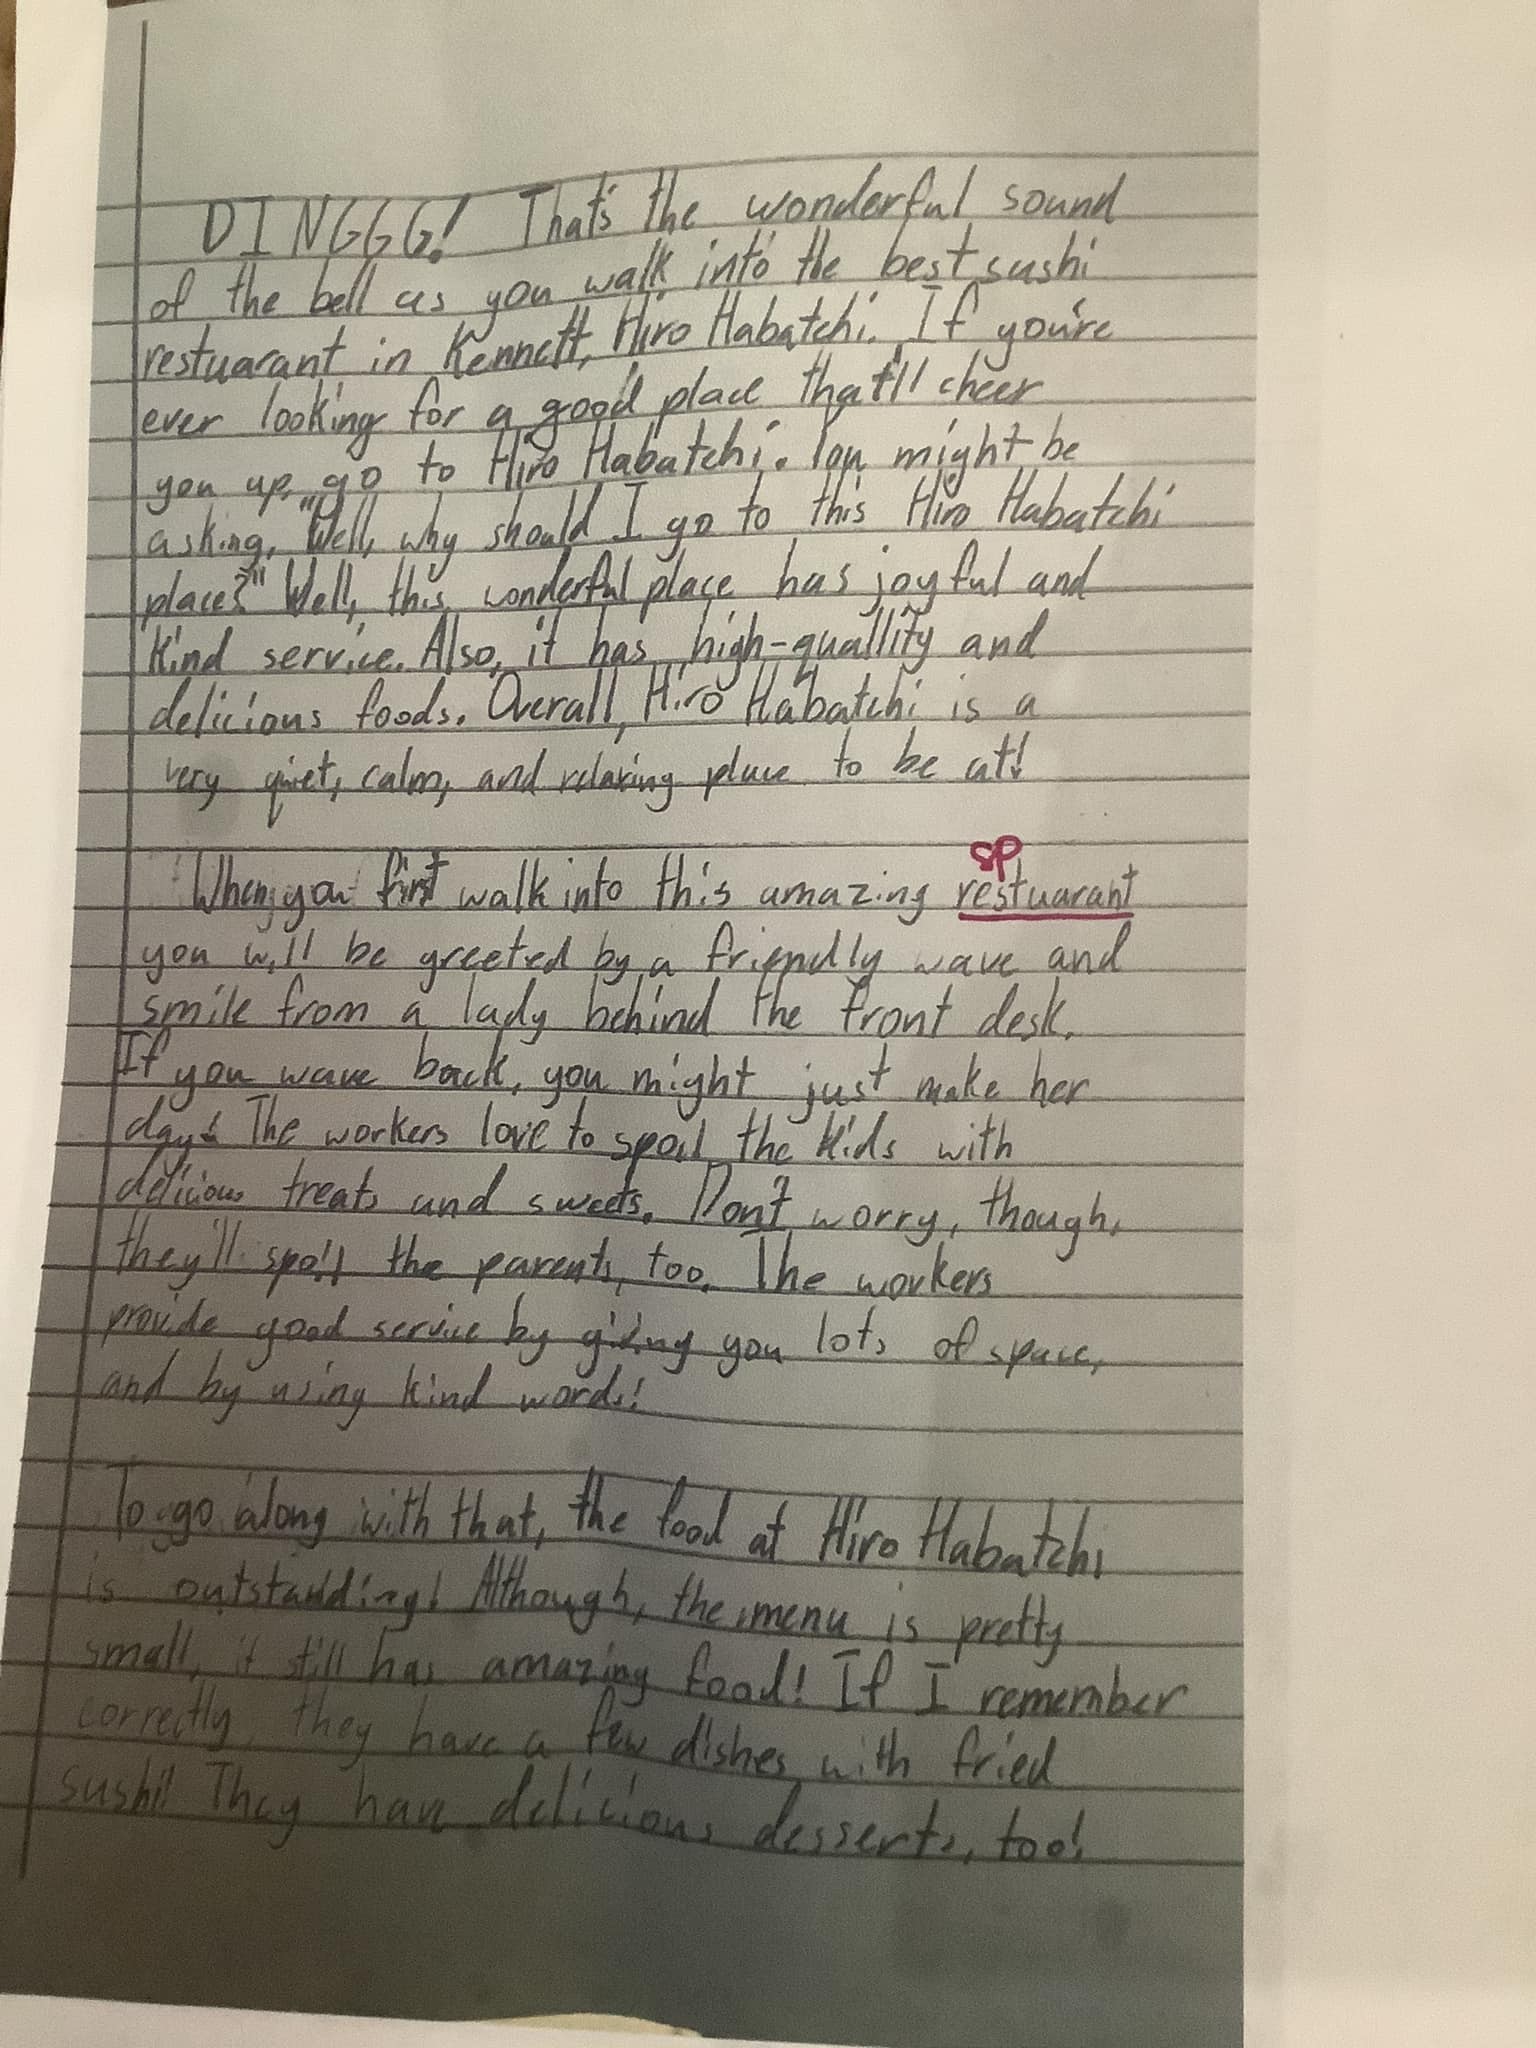 DINGGG! That's the wonderful sound
of the bell as you walk into the best sushi
restuarant in Kennett, Hiro Habatchi. If you're
ever looking for a good place that'll cheer
you up, go to Hiro Habatchi. You might be
asking, "Well, why should I go to this Hiro Habatchi
place?" Well, this wonderful place has joyful and
kind service. Also, it has high-quallity and
delicious foods. Overall, Hiro Habatchi is a
very quiet, calm, and relaxing place to be at!
sp
When you first walk into this amazing restuarant
you will be greeted by a friendly wave and
smile from a lady behind the front desk.
If you wave back, you might just make her
day! The workers love to spoil the kids with
delicious treats and sweets. Don't worry, though,
they'll spoil the parents, too. The workers
provide good service by giving you lots of space,
and by using kind words!
To go along with that, the food at Hiro Habatchi
is outstanding! Although, the menu is pretty
small, it still has amazing food! If I remember
correctly, they have a few dishes with fried
sushi! They have delicious desserts, too!